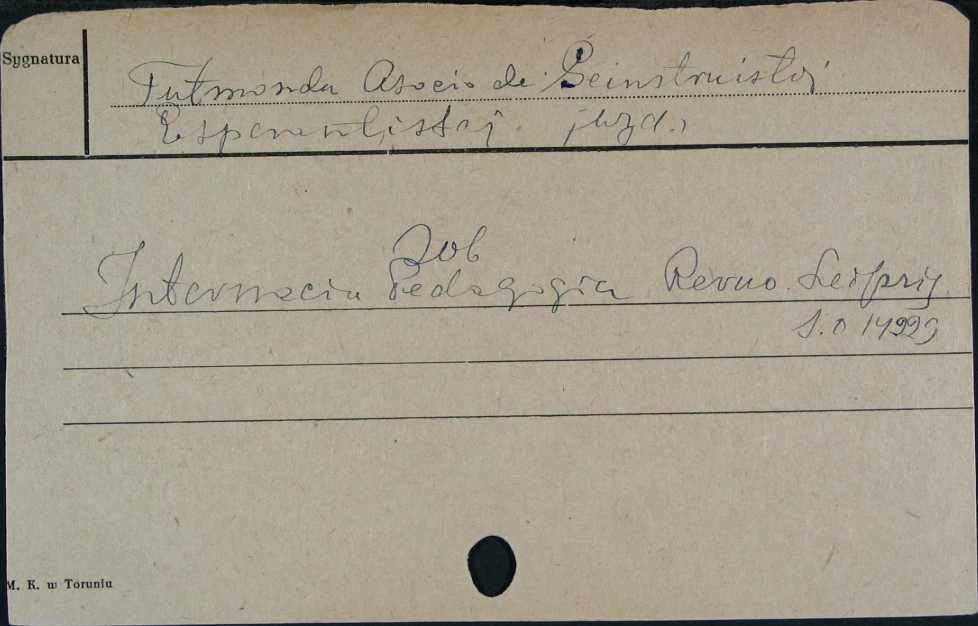 Sygnatura
Tutmonda Asocio de Geinstruistoj
Esperantistaj. (wyd.)
Zob
Internacia Pedagogia Revuo. Leipzig
S.O 14229
M. K. w Toruniu